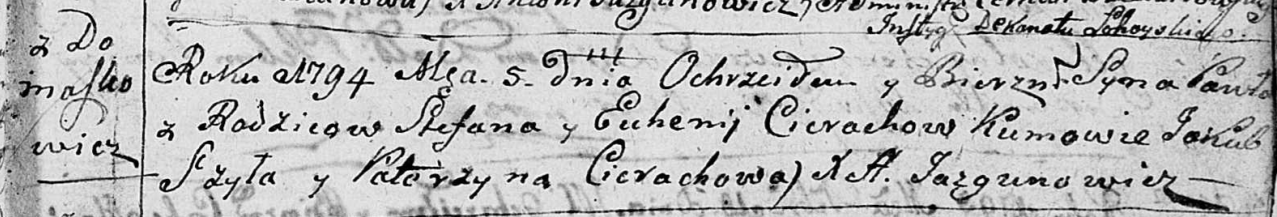 X Antoni Jazgunowicz Administr
Instyg Dekanatu Łohoyskiego.
z Do
maszko
wicz
Roku 1794 Mca. 5. Dnia Ochrzciłem y Bierzm Syna Pawła
z Rodzicow Stefana y Euhenij Cierachow Kumowie Jakub
Szyła y Katarzyna Cierachowa) X A. Jazgunowicz